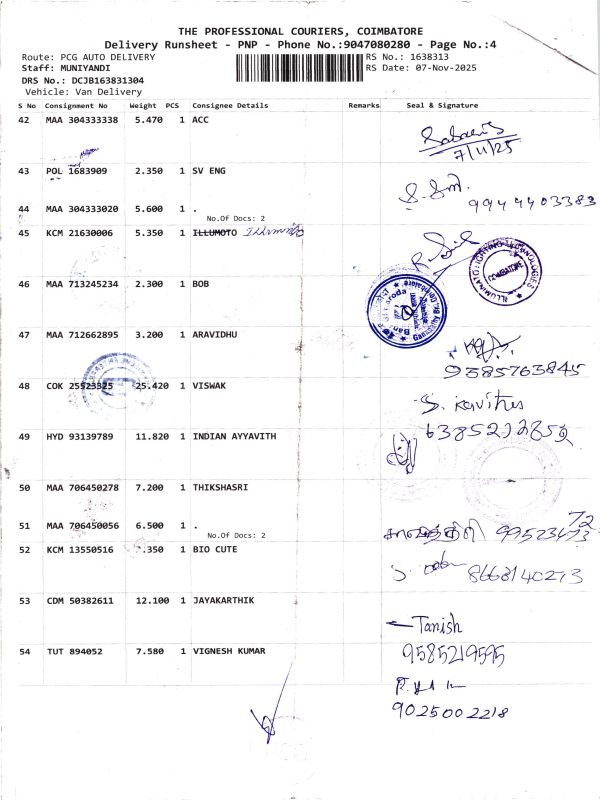 THE PROFESSIONAL COURIERS, COIMBATORE
Delivery Runsheet - PNP - Phone No.:9047080280 - Page No.:4
Route: PCG AUTO DELIVERY
RS No.: 1638313
Staff: MUNIYANDI
RS Date: 07-Nov-2025
DRS No.: DCJB163831304
Vehicle: Van Delivery
S No Consignment No Weight PCS Consignee Details Remarks Seal & Signature
42 MAA 304333338 5.470 1 ACC
7/11/25
43 POL 1683909 2.350 1 SV ENG
9944403383
44 MAA 304333020 5.600 1 .
No.Of Docs: 2
45 KCM 21630006 5.350 1 ILLUMOTO
ILLUMINATO LIGHTING TECHNOLOGIES
COIMBATORE
46 MAA 713245234 2.300 1 BOB
47 MAA 712662895 3.200 1 ARAVIDHU
9385763845
48 COK 25523325 25.420 1 VISWAK
S. Kavitha
6385212852
49 HYD 93139789 11.820 1 INDIAN AYYAVITH
50 MAA 706450278 7.200 1 THIKSHASRI
51 MAA 706450056 6.500 1 .
No.Of Docs: 2
52 KCM 13550516 .350 1 BIO CUTE
8668140273
53 CDM 50382611 12.100 1 JAYAKARTHIK
Tanish
9585219595
54 TUT 894052 7.580 1 VIGNESH KUMAR
9025002218